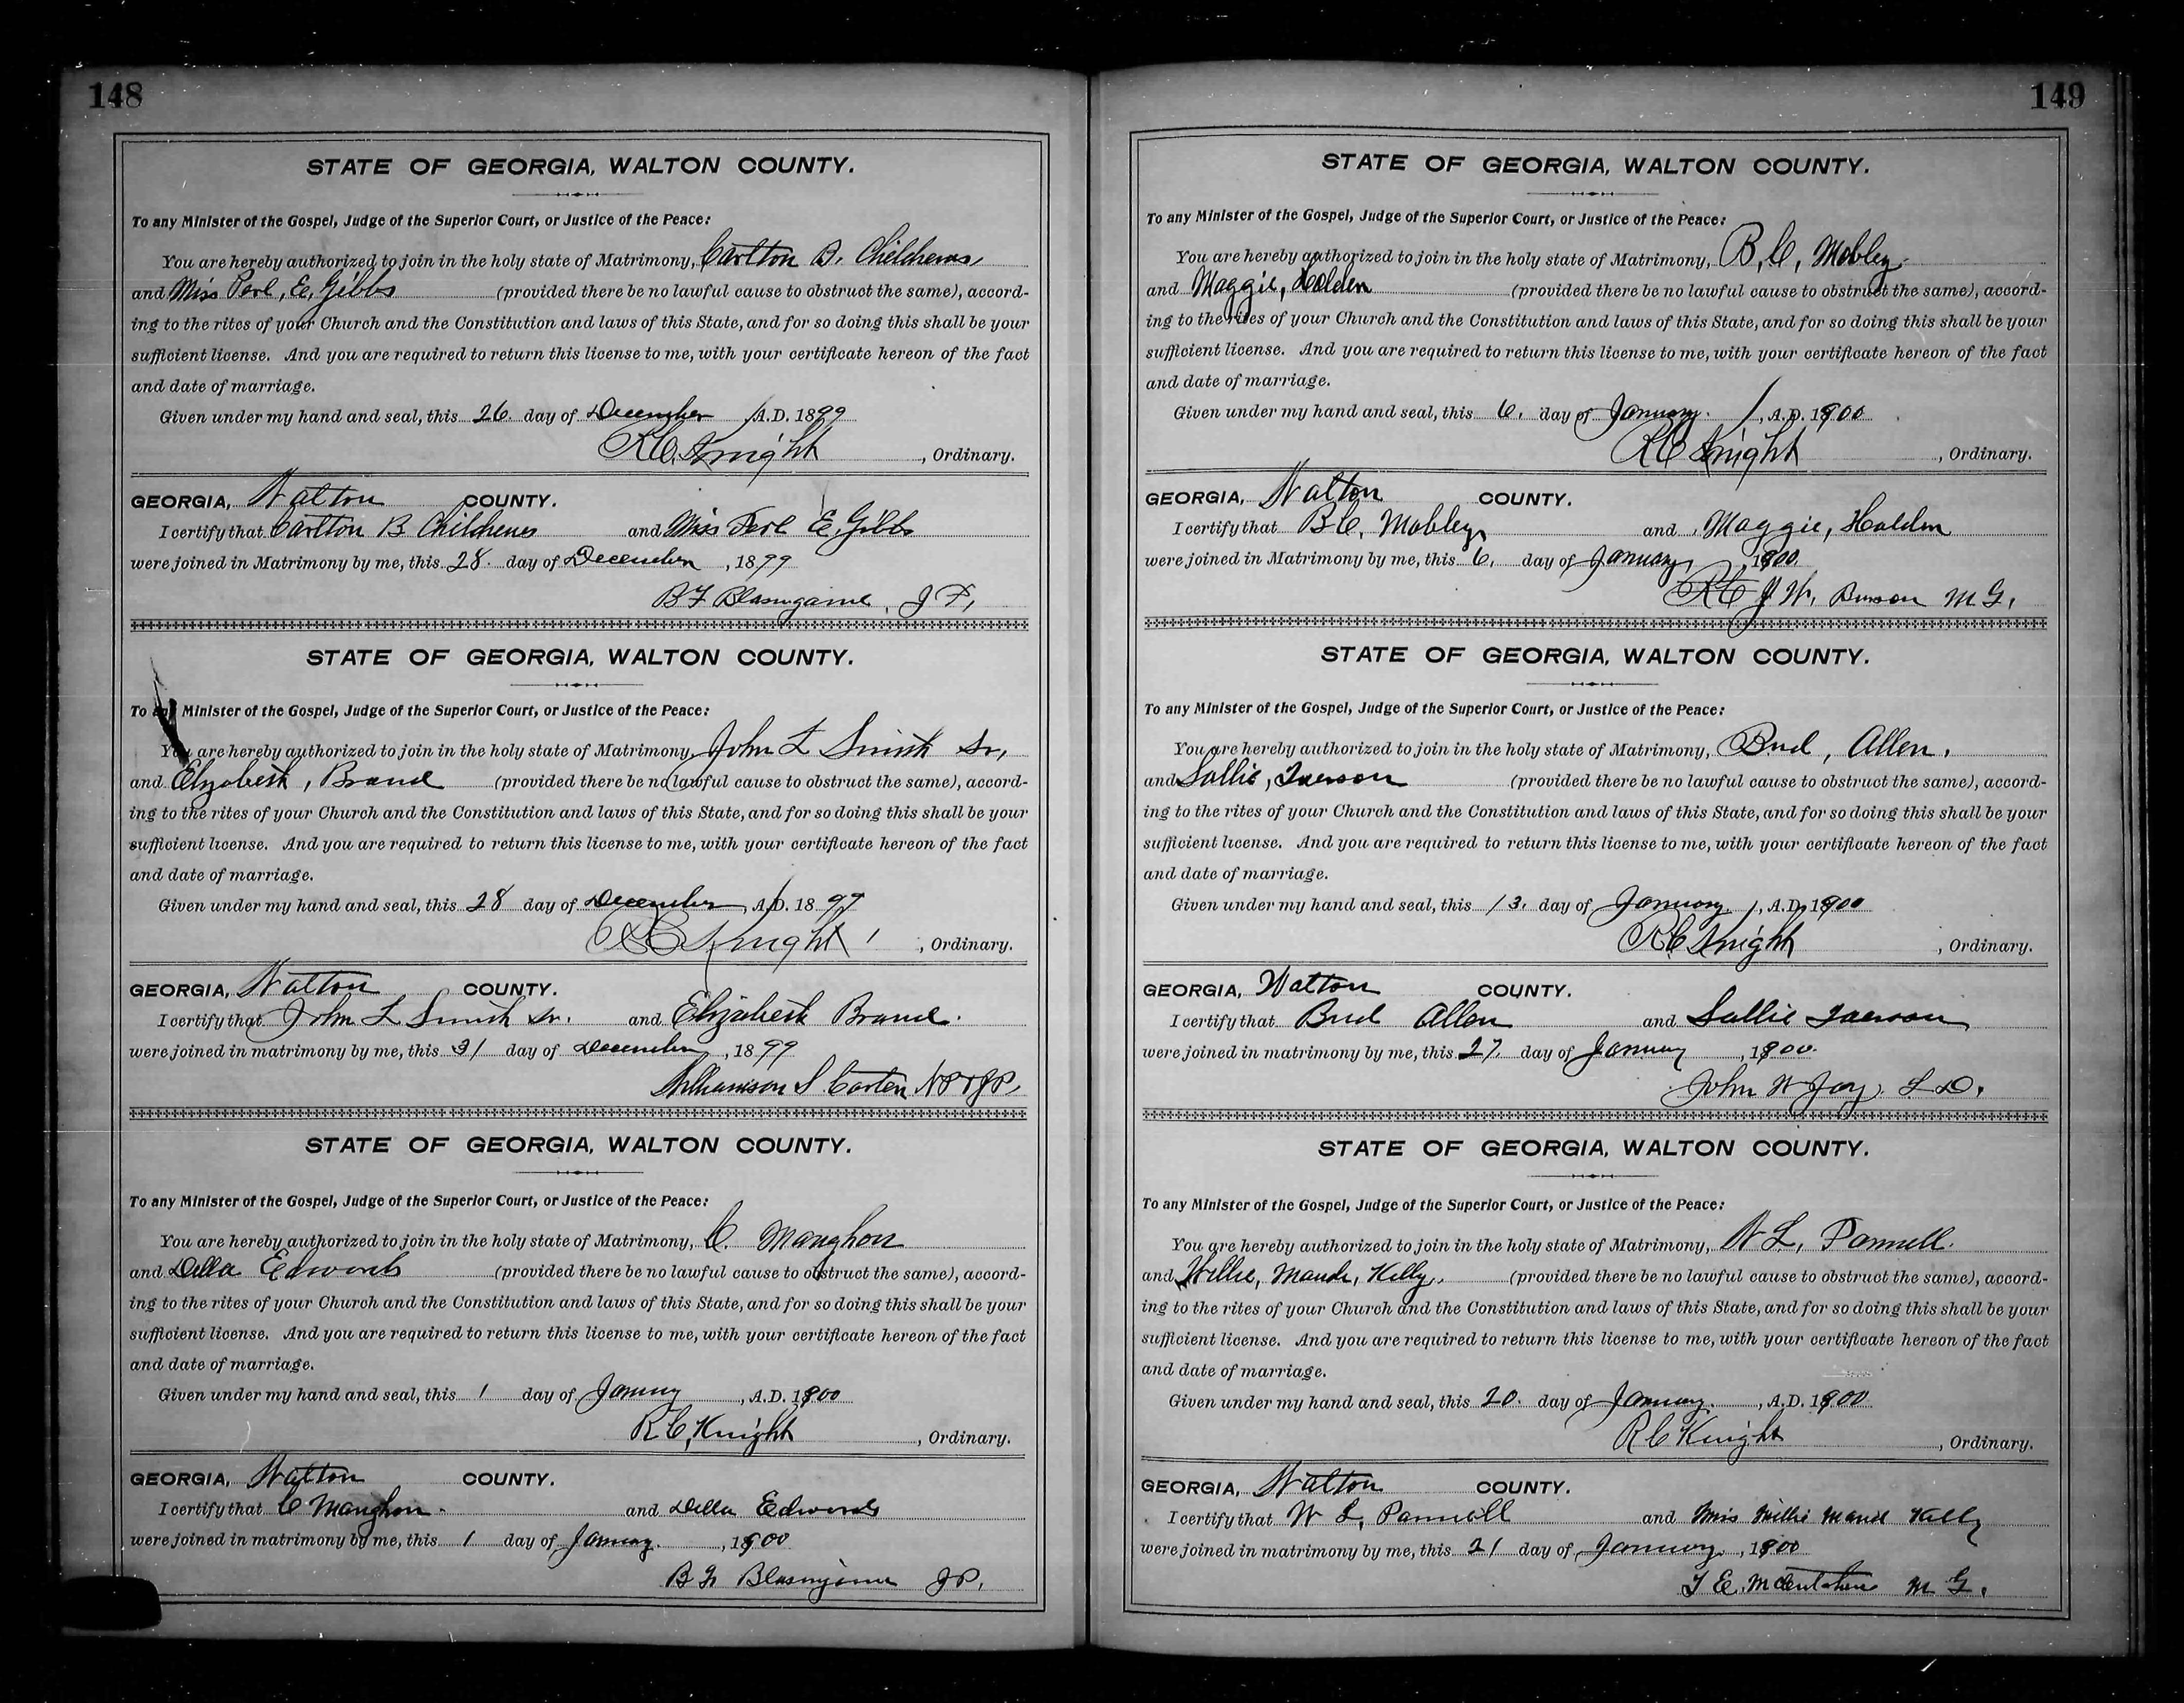 148
STATE OF GEORGIA, WALTON COUNTY.
To any Minister of the Gospel, Judge of the Superior Court, or Justice of the Peace:
You are hereby authorized to join in the holy state of Matrimony, Carlton B. Childrens,
and Miss Perl, E, Gibbs (provided there be no lawful cause to obstruct the same), accord-
ing to the rites of your Church and the Constitution and laws of this State, and for so doing this shall be your
sufficient license. And you are required to return this license to me, with your certificate hereon of the fact
and date of marriage.
Given under my hand and seal, this 26 day of December, A.D. 1899
R C. Knight, Ordinary.
GEORGIA, Walton COUNTY.
I certify that Carlton B Childrens and Miss Perl E. Gibbs
were joined in Matrimony by me, this 28. day of December, 1899
B F Blasingame, J P,
STATE OF GEORGIA, WALTON COUNTY.
To any Minister of the Gospel, Judge of the Superior Court, or Justice of the Peace:
You are hereby authorized to join in the holy state of Matrimony, John L Smith Sr,
and Elizabeth, Brand (provided there be no lawful cause to obstruct the same), accord-
ing to the rites of your Church and the Constitution and laws of this State, and for so doing this shall be your
sufficient license. And you are required to return this license to me, with your certificate hereon of the fact
and date of marriage.
Given under my hand and seal, this 28 day of December, A.D. 1899
R C Knight, Ordinary.
GEORGIA, Walton COUNTY.
I certify that John L Smith Sr. and Elizabeth Brand.
were joined in matrimony by me, this 31 day of December, 1899
Williamson S. Carter, N P & J P.
STATE OF GEORGIA, WALTON COUNTY.
To any Minister of the Gospel, Judge of the Superior Court, or Justice of the Peace:
You are hereby authorized to join in the holy state of Matrimony, C. Maughon
and Della Edwards (provided there be no lawful cause to obstruct the same), accord-
ing to the rites of your Church and the Constitution and laws of this State, and for so doing this shall be your
sufficient license. And you are required to return this license to me, with your certificate hereon of the fact
and date of marriage.
Given under my hand and seal, this 1 day of January, A.D. 1900
R C, Knight, Ordinary.
GEORGIA, Walton COUNTY.
I certify that C Maughon. and Della Edwards
were joined in matrimony by me, this 1 day of January., 1900
B F Blasingame J P,
149
STATE OF GEORGIA, WALTON COUNTY.
To any Minister of the Gospel, Judge of the Superior Court, or Justice of the Peace:
You are hereby authorized to join in the holy state of Matrimony, B, C, Mobley
and Maggie, Holden (provided there be no lawful cause to obstruct the same), accord-
ing to the rites of your Church and the Constitution and laws of this State, and for so doing this shall be your
sufficient license. And you are required to return this license to me, with your certificate hereon of the fact
and date of marriage.
Given under my hand and seal, this 6. day of January., A.D. 1900
R C Knight, Ordinary.
GEORGIA, Walton COUNTY.
I certify that B C, Mobley, and Maggie, Holden
were joined in Matrimony by me, this 6. day of January, 1900.
J W, Burson M G.
STATE OF GEORGIA, WALTON COUNTY.
To any Minister of the Gospel, Judge of the Superior Court, or Justice of the Peace:
You are hereby authorized to join in the holy state of Matrimony, Bud, Allen,
and Sallie, (provided there be no lawful cause to obstruct the same), accord-
ing to the rites of your Church and the Constitution and laws of this State, and for so doing this shall be your
sufficient license. And you are required to return this license to me, with your certificate hereon of the fact
and date of marriage.
Given under my hand and seal, this 13. day of January, A.D. 1900
R C Knight, Ordinary.
GEORGIA, Walton COUNTY.
I certify that Bud Allen and Sallie
were joined in matrimony by me, this 27. day of January, 1900.
John W Jay, L D.
STATE OF GEORGIA, WALTON COUNTY.
To any Minister of the Gospel, Judge of the Superior Court, or Justice of the Peace:
You are hereby authorized to join in the holy state of Matrimony, W L, Pannell.
and Willie, Maude, Kelly, (provided there be no lawful cause to obstruct the same), accord-
ing to the rites of your Church and the Constitution and laws of this State, and for so doing this shall be your
sufficient license. And you are required to return this license to me, with your certificate hereon of the fact
and date of marriage.
Given under my hand and seal, this 20. day of January., A.D. 1900
R C Knight, Ordinary.
GEORGIA, Walton COUNTY.
I certify that W L, Pannell and Miss Willie Maud Kelly
were joined in matrimony by me, this 21 day of January, 1900
T E. McCutchen M G.